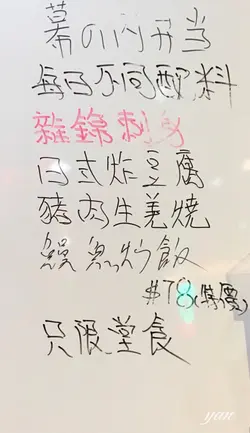 幕の内弁当
每日不同配料
雜錦刺身
日式炸豆腐
豬肉生姜燒
鰻魚炒飯
$78(特價)
只限堂食
yan